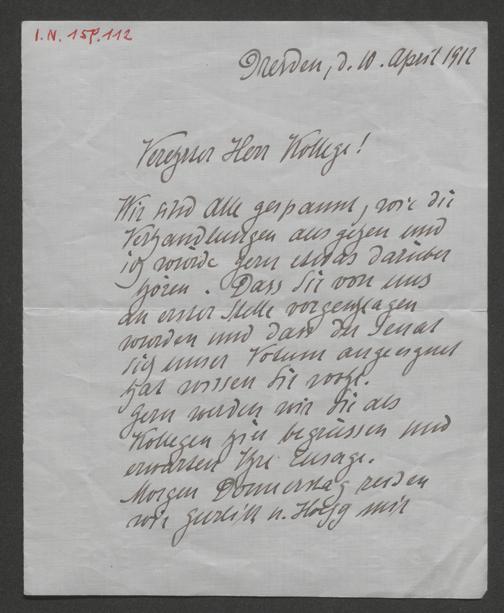 I.N. 158.112
Dresden, d. 10. April 1912
Verehrter Herr Kollege!
Wir sind alle gespannt, wie die
Verhandlungen ausgehen und
ich würde gern etwas darüber
hören. Dass Sie von uns
an erster Stelle vorgeschlagen
wurden und dass der Senat
sich unser Votum angeeignet
hat wissen Sie wohl.
Gern werden wir Sie als
Kollegen hier begrüssen und
erwarten Ihre Zusage.
Morgen Donnerstag reden
wir Gurlitt u. Högg mit